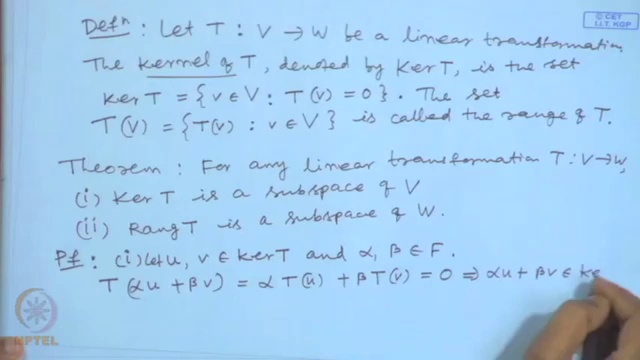 © CET
I.I.T. KGP
Defⁿ : Let T : V → W be a linear transformation
The kernel of T, denoted by Ker T, is the set
Ker T = {v ∈ V : T(v) = 0}. The set
T(V) = {T(v) : v ∈ V} is called the range of T.
Theorem : For any linear transformation T : V → W,
(i) Ker T is a subspace of V
(ii) Rang T is a subspace of W.
Pf : (i) Let u, v ∈ Ker T and α, β ∈ F.
T(αu + βv) = α T(u) + β T(v) = 0 ⇒ αu + βv ∈ Ke
NPTEL